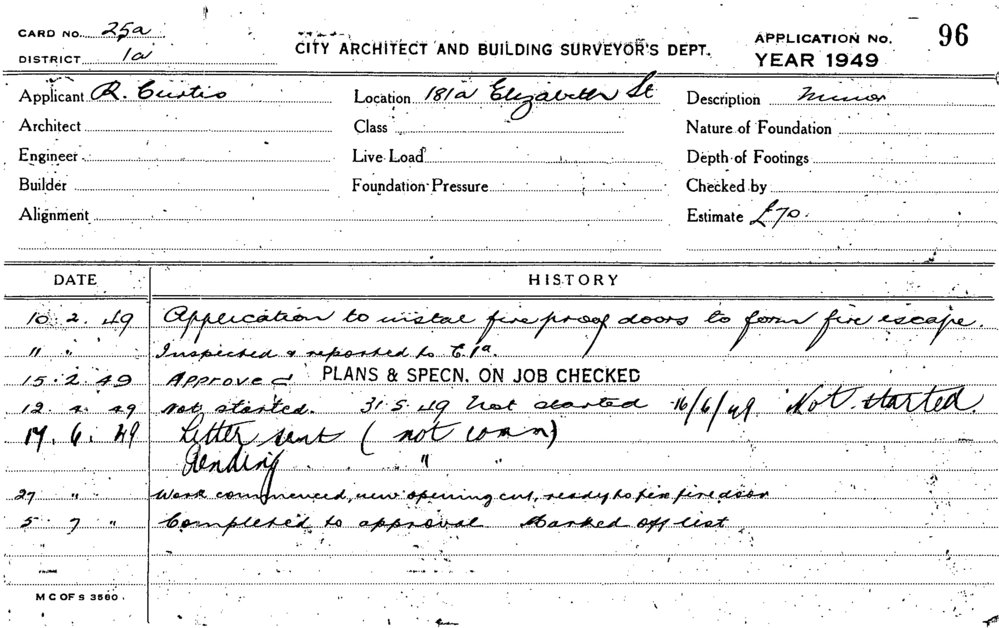 CARD NO. 25a
DISTRICT 1a
CITY ARCHITECT AND BUILDING SURVEYOR'S DEPT.
APPLICATION NO. 96
YEAR 1949
Applicant R. Curtis
Location 181a Elizabeth St
Description Minor
Architect
Class
Nature of Foundation
Engineer
Live Load
Depth of Footings
Builder
Foundation Pressure
Checked by
Alignment
Estimate £70.
DATE HISTORY
10. 2. 49 Application to instal fire proof doors to form fire escape.
" " Inspected & reported to E.1a.
15. 2. 49 Approved PLANS & SPECN. ON JOB CHECKED
12. 4. 49 Not started. 31. 5. 49 Not started 16/6/49 Not started.
17. 6. 49 Letter sent (not comm)
Pending " "
27 " Work commenced, new opening cut, ready to fix fire door
5 7 " Completed to approval Marked off list
M C OF S 3580.